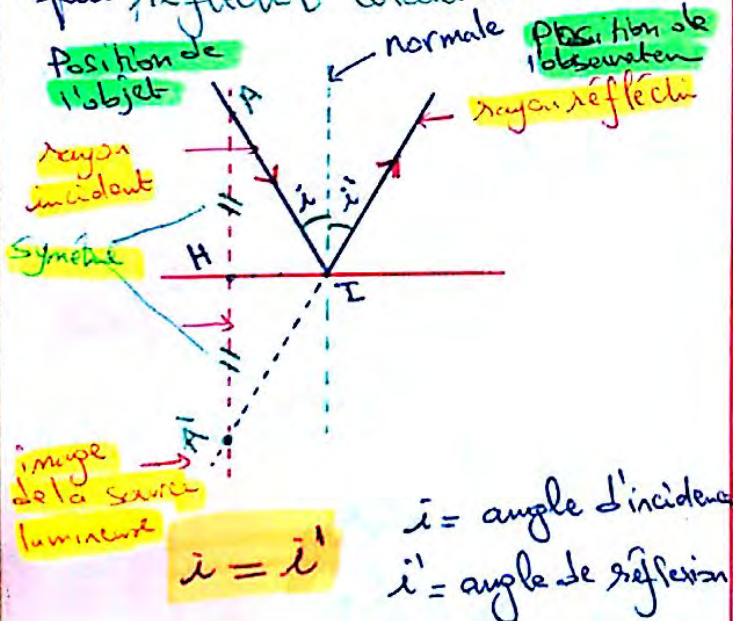 réfléchit
normale
Position de
l'objet
Position de
l'observateur
rayon réfléchi
A
rayon
incident
i
i'
Symétrie
H
I
A'
image
de la source
lumineuse
i = i'
i = angle d'incidence
i' = angle de réflexion